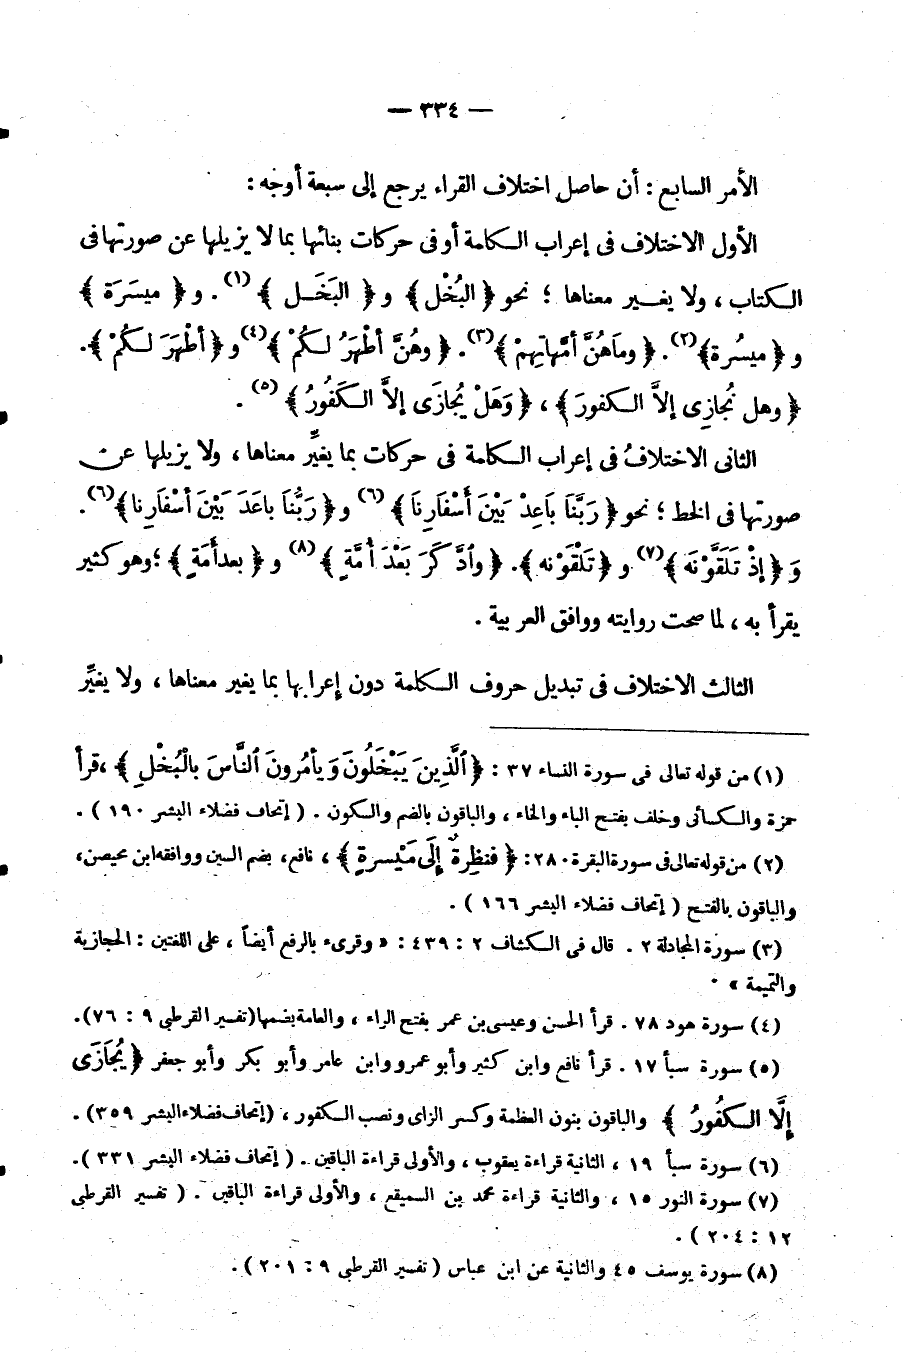 — ٣٣٤ —
الأمر السابع : أن حاصل اختلاف القراء يرجع إلى سبعة أوجه :
الأول الاختلاف فى إعراب الكلمة أو فى حركات بنائها بما لا يزيلها عن صورتها فى
الكتاب ، ولا يغير معناها ؛ نحو ﴿ البُخْل ﴾ و ﴿ البَخَل ﴾ (١) . و ﴿ ميسَرَة ﴾
و ﴿ ميسُرة﴾(٢). ﴿ وماَهُنَّ أمَّهاتِهِمْ ﴾(٣). ﴿ وهُنَّ أطْهَرُ لكُمْ ﴾(٤) و ﴿ أطْهَرَ لكُمْ ﴾.
﴿ وهل نُجازِى إلاَّ الكفورَ ﴾ ، ﴿ وَهَلْ يُجازَى إلاَّ الكَفُورُ ﴾ (٥) .
الثانى الاختلافُ فى إعراب الكلمة فى حركات بما يغيِّر معناها ، ولا يزيلها عن
صورتها فى الخط ؛ نحو ﴿ رَبَّنَا بَاعِدْ بَيْنَ أَسْفَارِنَا ﴾ (٦) و ﴿ رَبُّنَا باعَدَ بَيْنَ أسْفَارِنا ﴾(٦).
وَ ﴿ إذْ تَلَقَّوْنَه ﴾(٧) و ﴿ تَلْقَوْنه ﴾. ﴿ وٱدَّكَرَ بَعْدَ أُمَّةٍ ﴾ (٨) و ﴿ بعدأَمَةٍ ﴾ ؛ وهو كثير
يقرأ به ، لما صحت روايته ووافق العربية .
الثالث الاختلاف فى تبديل حروف الكلمة دون إعرابها بما يغير معناها ، ولا يغيِّر
(١) من قوله تعالى فى سورة النساء ٣٧ : ﴿ ٱلَّذِينَ يَبْخَلُونَ وَيأمُرونَ ٱلنَّاسَ بالْبُخْلِ ﴾ ، قرأ
حمزة والكسائى وخلف بفتح الباء والخاء ، والباقون بالضم والسكون . ( إتحاف فضلاء البشر ١٩٠ ) .
(٢) من قوله تعالى فى سورة البقرة ٢٨٠ : ﴿ فنظِرةٌ إلَى مَيْسرةٍ ﴾ ، نافع ، بضم السين ووافقه ابن محيصن،
والباقون بالفتح ( إتحاف فضلاء البشر ١٦٦ ) .
(٣) سورة المجادلة ٢ . قال فى الكشاف ٢ : ٤٣٩ : « وقرىء بالرفع أيضاً ، على اللغتين : الحجازية
والتميمة » .
(٤) سورة هود ٧٨ . قرأ الحسن وعيسى بن عمر بفتح الراء ، والعامة بضمها (تفسير القرطبى ٩ : ٧٦).
(٥) سورة سبأ ١٧ . قرأ نافع وابن كثير وأبو عمرو وابن عامر وأبو بكر وأبو جعفر ﴿ يُجَازَى
إلَّا الكفُورُ ﴾ والباقون بنون العظمة وكسر الزاى ونصب الكفور ، (إتحاف فضلاء البشر ٣٥٩) .
(٦) سورة سبأ ١٩ ، الثانية قراءة يعقوب ، والأولى قراءة الباقين . ( إتحاف فضلاء البشر ٣٣١ ).
(٧) سورة النور ١٥ ، والثانية قراءة محمد بن السميقع ، والأولى قراءة الباقين . ( تفسير القرطبى
١٢ : ٢٠٤ ) .
(٨) سورة يوسف ٤٥ والثانية عن ابن عباس ( تفسير القرطبى ٩ : ٢٠١ ) .